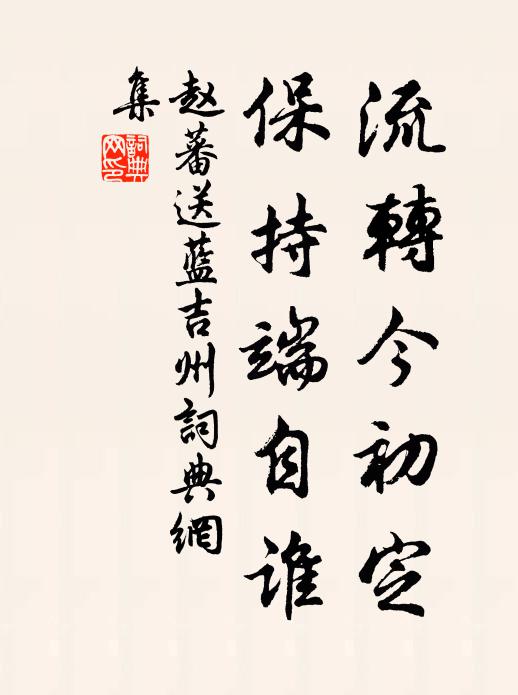 流轉今初定
保持端自誰
赵蕃送藍吉州詞典網
集
詞典
网印